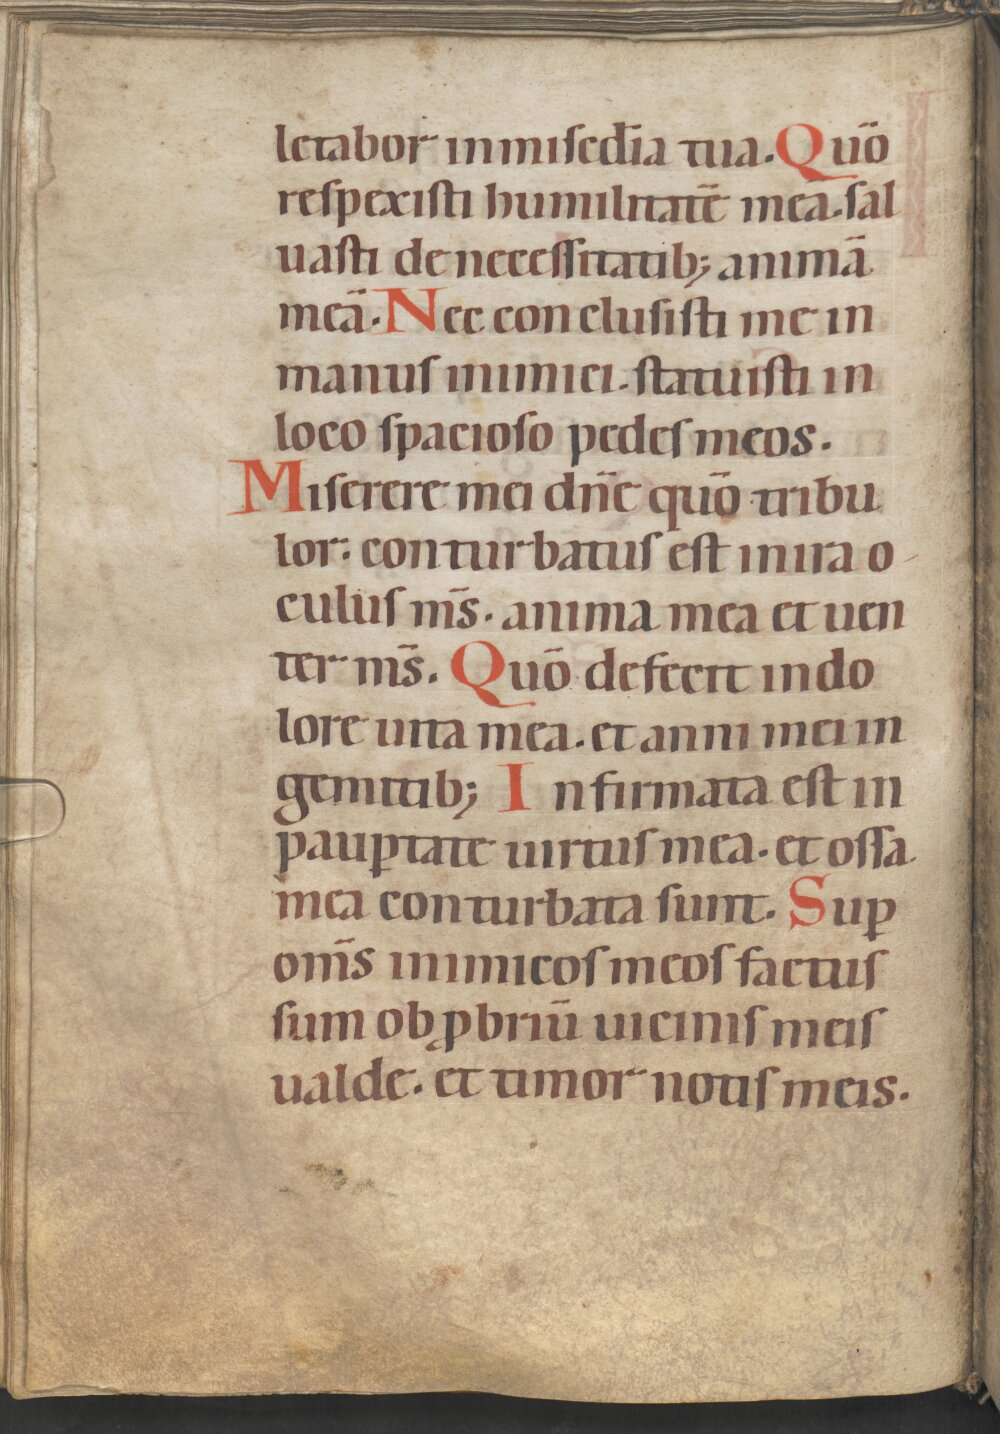 letabor in misedīa tua. Quō
respexisti humilitatē meā. sal
uasti de necessitatib; animā
meā. Nec conclusisti me in
manus inimici. statuisti in
loco spacioso pedes meos.
Miserere mei dñe quō tribu
lor: conturbatus est in ira o
culus m̄s. anima mea et uen
ter m̄s. Quō defecit in do
lore uita mea. et anni mei in
gemitib; Infirmata est in
pauꝑtate uirtus mea. et ossa
mea conturbata sunt. Suꝑ
om̄s inimicos meos factus
sum obꝓbriū uicinis meis
ualde. et timor notis meis.